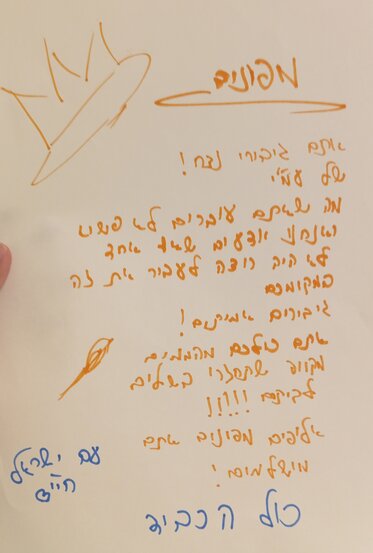 מפונים
אתם גיבורי נצח!
של עמ"י
מה שאתם עוברים לא פשוט
ואנחנו יודעים שאף אחד
לא היה רוצה לעבור את זה
במקומכם
גיבורים אמיתיים!
אתם כולכם מהממים
מקווה שתחזרו בשלום
לביתכם !!!!!
אליפים מפונים אתם
מושלמים!
עם ישראל
חי"ם
כול הכביד